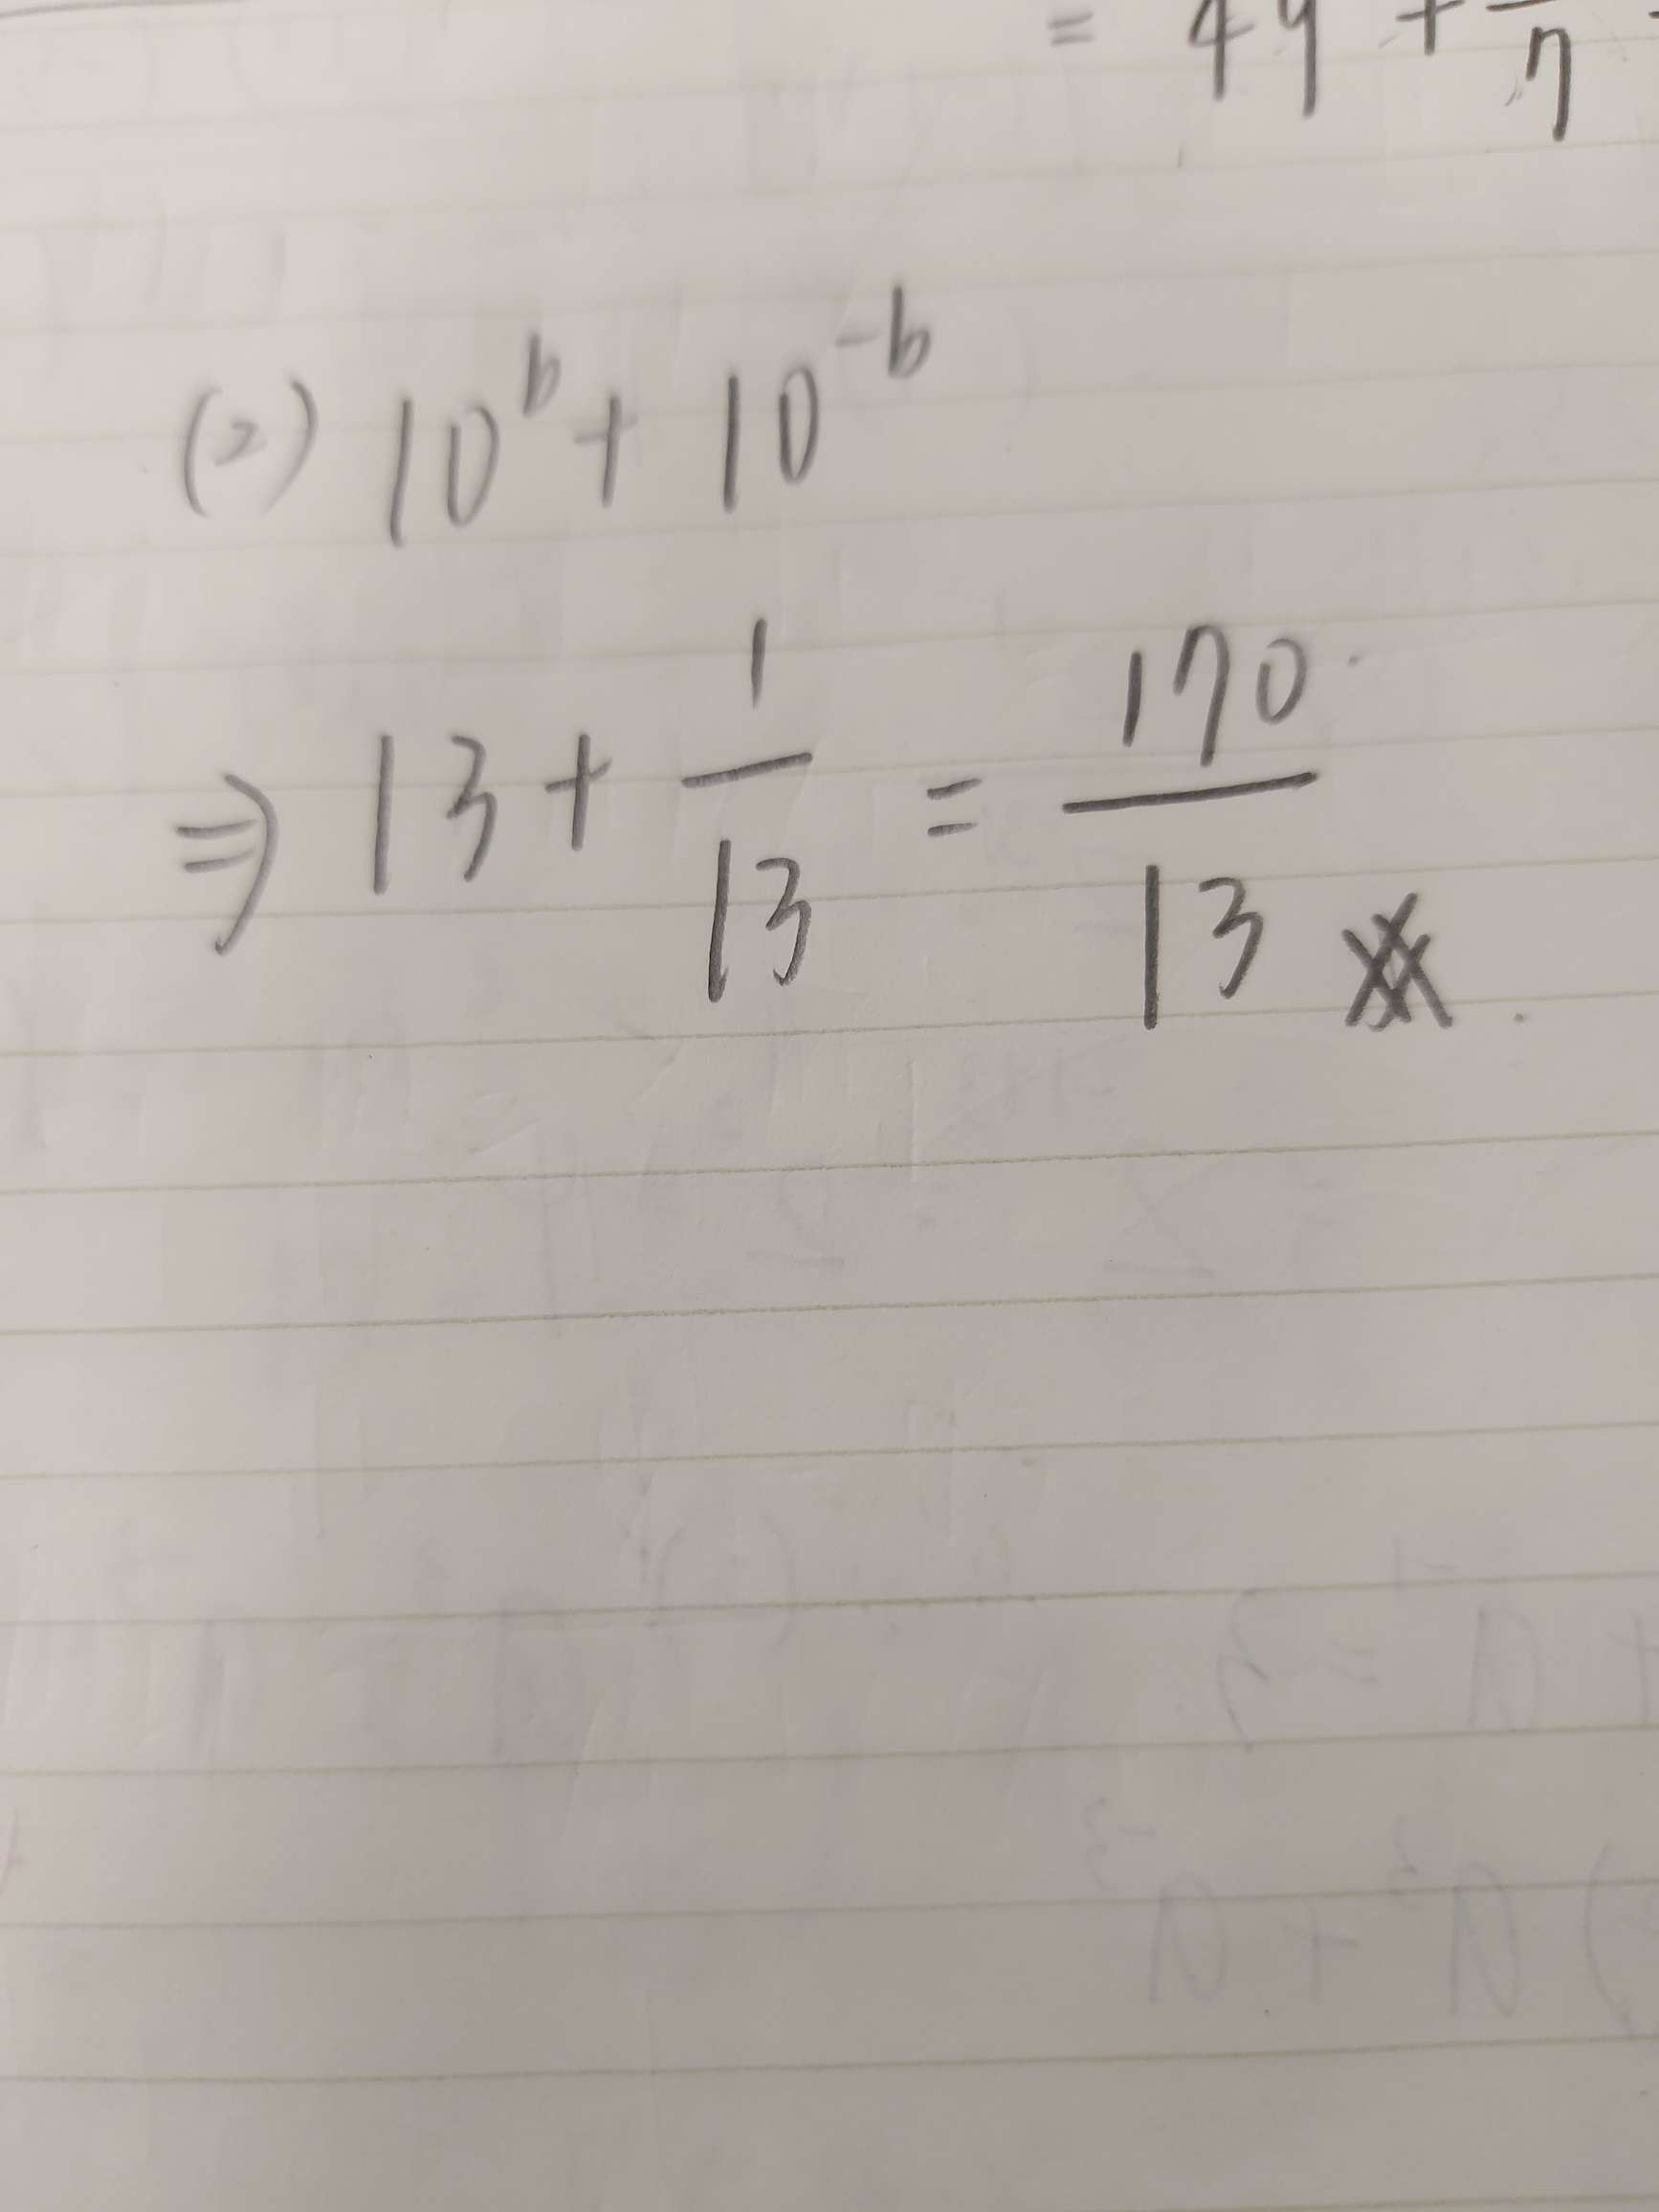 = 49 + 7
(2) 10^b + 10^-b
⇒ 13 + 1/13 = 170/13